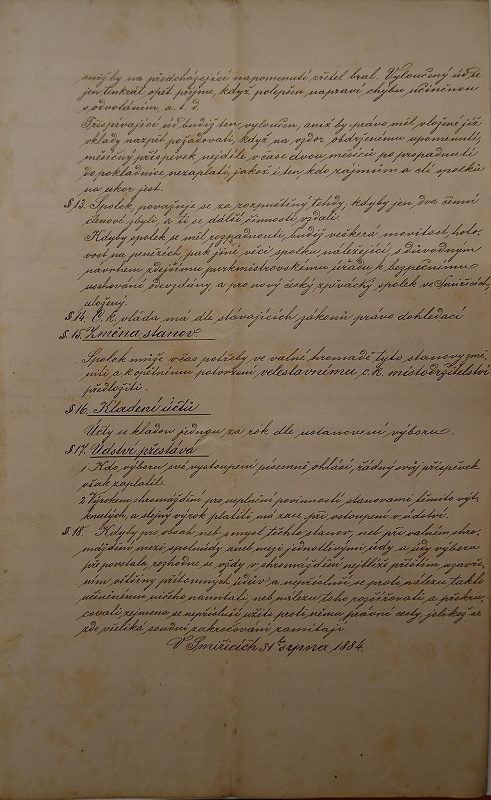 anižby na předcházející napomenutí zřetel bral. Vyloučený úd se
jen tenkrát opět přijme, když polepšen napraví chybu učiněnou
s odvoláním, a. t. d.
Přispívající úd budiž ten vyloučen, aniž by právo měl, vložené již
vklady nazpět požadovati, když na vzdor obdrženému upomenutí,
měsíčný příspěvek nejdéle v čase dvou měsíců po propadnutí
do pokladnice nezaplatí, jakož i ten, kdo zájmům a cti spolku
na úkor jest.
§ 13. Spolek, považuje se za rozpuštěný tehdy, kdyby jen dva činní
členové zbyli, a ti se další činnosti vzdali.
Kdyby spolek se měl rozpadnouti, budiž veškerá movitost, hoto-
vost na penězích, pak jiné věci spolku náležející, s důvodným
návrhem zdejšímu purkmistrovskému úřadu k bezpečnému
uschování odevzdány, a pro nový český zpěvácký spolek ve Smiřicích,
uloženy.
§ 14. C. k. vláda má dle stávajících zákonů právo dohlédací
§. 15. Změna stanov.
Spolek může včas potřeby ve valné hromadě tyto stanovy změ-
niti a k opětnému potvrzení veleslavnému c. k. místodržitelství
předložiti.
§ 16. Kladení účtů
Účty se kladou jednou za rok dle ustanovení výboru.
§ 17. Údství přestává
1 Kdo výboru své vystoupení písemně ohlásí, řádný svůj příspěvek
však zaplatil.
2 Výrokem shromáždění pro neplnění povinností stanovami těmito vyt-
knutých, a stejný výrok platiti má zase při vstoupení v údství.
§ 18. Kdyby pro obsah neb smysl těchto stanov, neb při valném shro-
máždění mezi spoluúdy aneb mezi jednotlivými údy a údy výboru
pře povstala, rozhodne se vždy v shromáždění nejblíže příštím uzavře-
ním většiny přítomných údův a nepřísluší, se proti nálezu takto
učiněnému ničeho namítati, neb nálezu toho rozšiřovati a překru-
covati, zejmena se nepřísluší užíti proti němu právní cesty, jelikož se
zde všeliká soudní zakročování zamítají.
V Smiřicích 31ho srpna 1884.